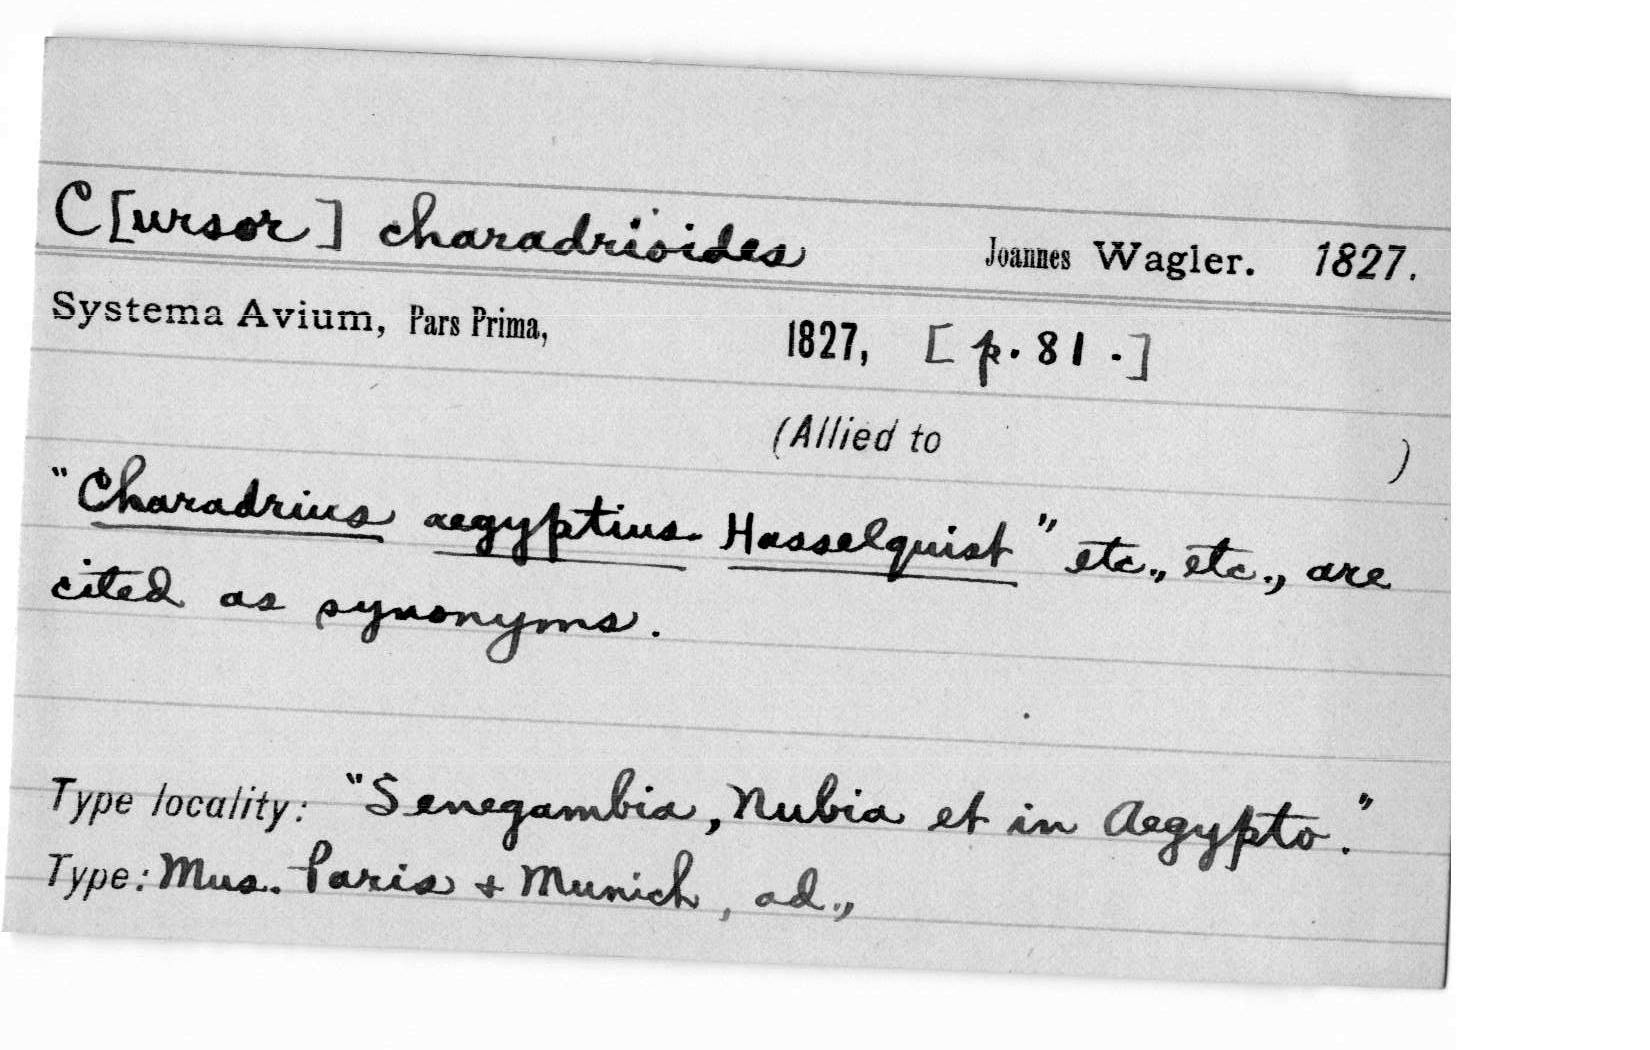 C[ursor] charadrioides Joannes Wagler. 1827.
Systema Avium, Pars Prima, 1827, [p. 81.]
(Allied to )
"Charadrius aegyptius Hasselquist" etc., etc., are
cited as synonyms.
Type locality: "Senegambia, Nubia et in Aegypto."
Type: Mus. Paris + Munich, ad.,